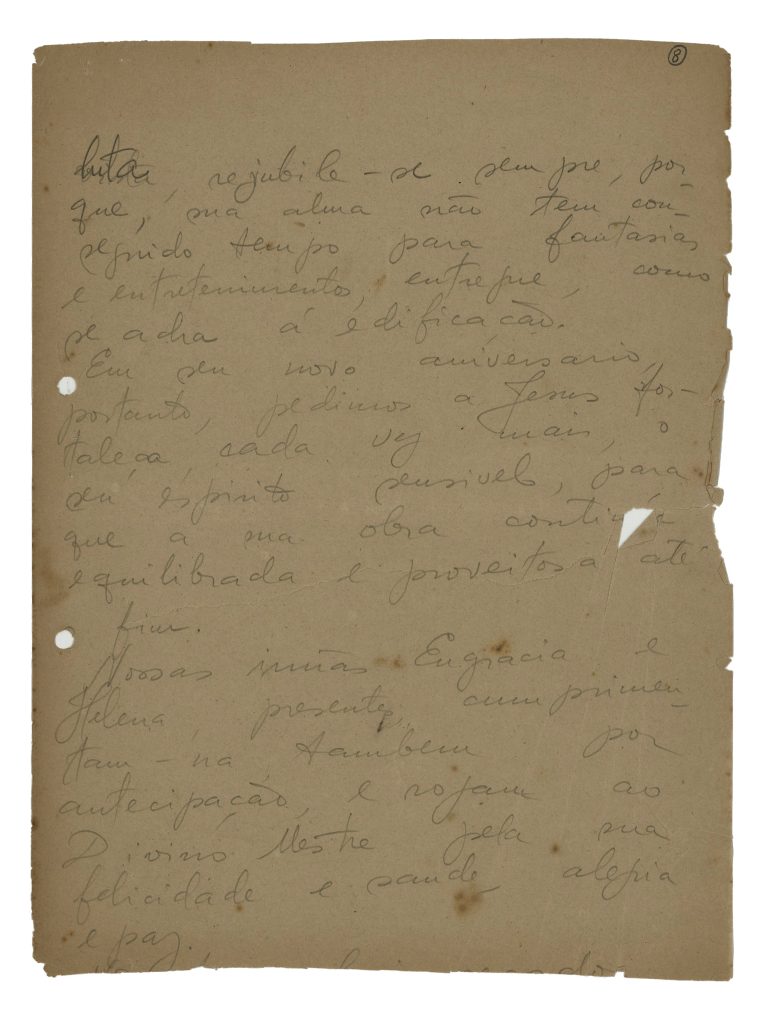 8
luta, rejubile-se sempre, por
que, sua alma não tem con-
seguido tempo para fantasias
e entretenimentos, entregue, como
se acha á edificação.
Em seu novo aniversario,
portanto, pedimos a Jesus for-
taleça, cada vez mais, o
seu espirito sensivel, para
que a sua obra continúe
equilibrada e proveitosa até
o fim.
Nossas irmãs Engracia e
Helena, presentes, cumprimen-
tam-na tambem por
antecipação, e rogam ao
Divino Mestre pela sua
felicidade e saude, alegria
e paz.